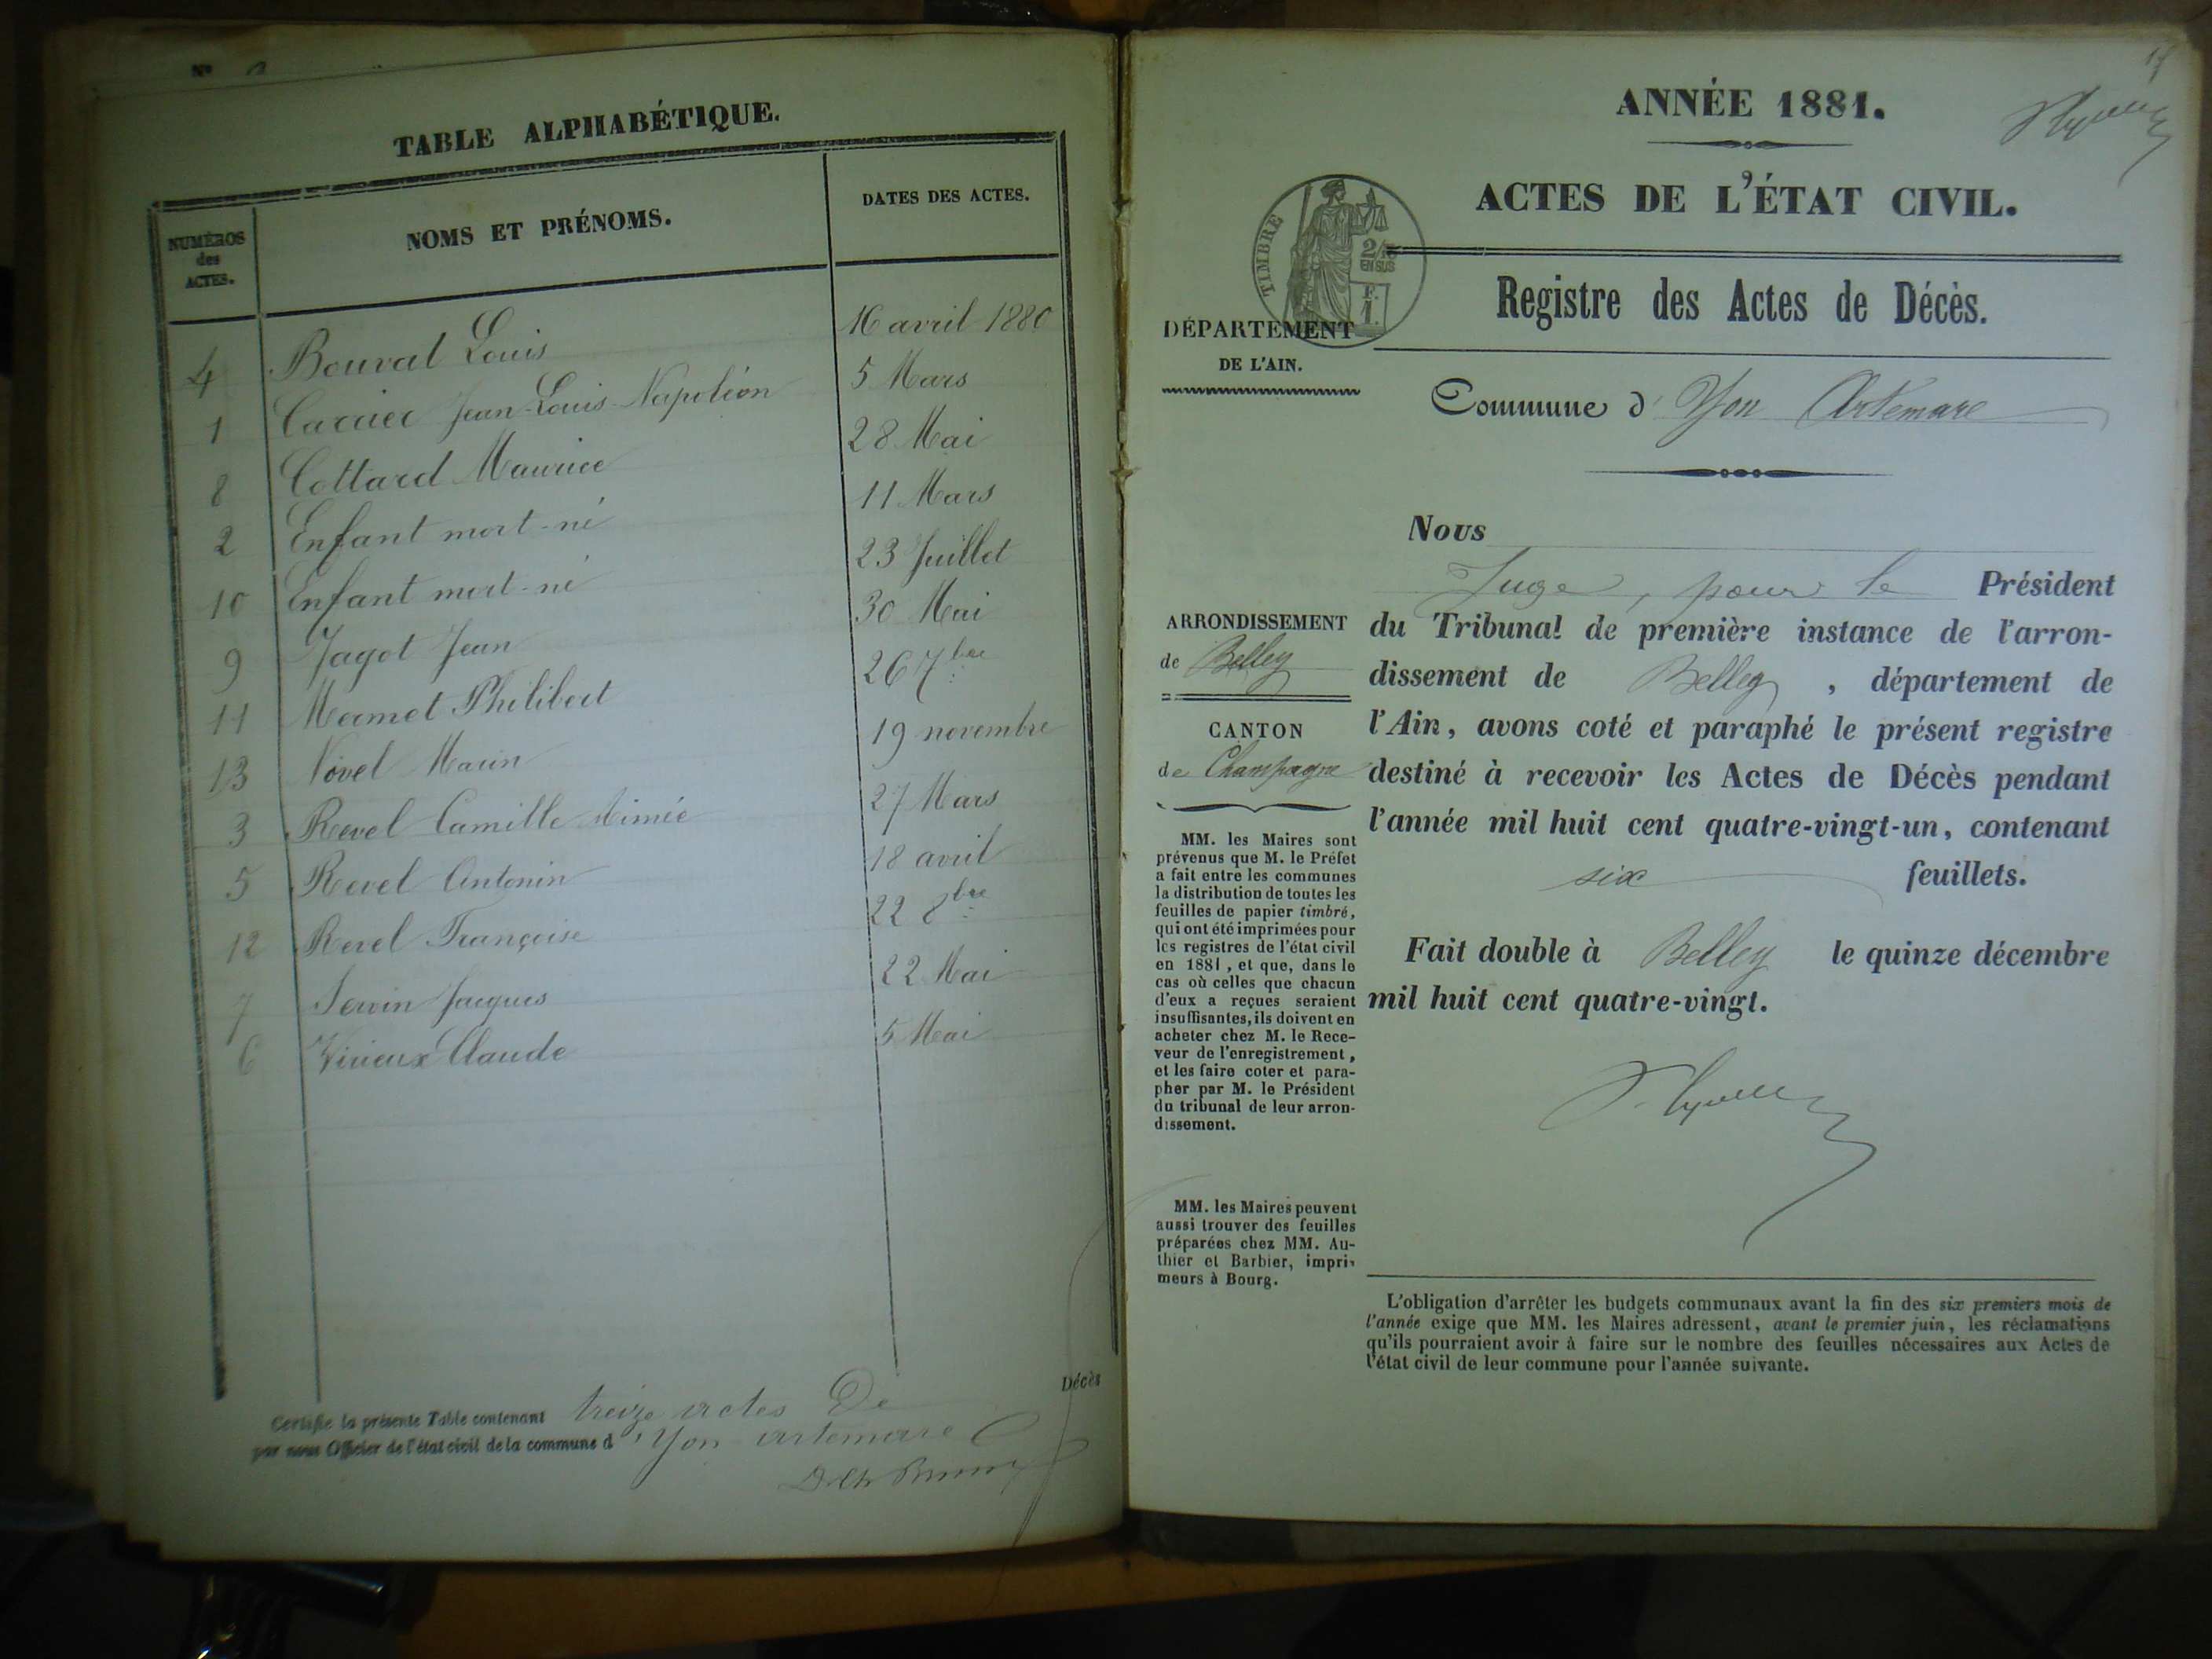 TABLE ALPHABÉTIQUE.
NUMÉROS
des
ACTES.
NOMS ET PRÉNOMS.
DATES DES ACTES.
4 Bouvat Louis 16 avril 1880
1 Carrier Jean-Louis-Napoléon 5 Mars
8 Cottard Maurice 28 Mai
2 Enfant mort-né 11 Mars
10 Enfant mort-né 23 Juillet
9 Jagot Jean 30 Mai
11 Mermet Philibert 26 7bre
13 Novel Marin 19 novembre
3 Revel Camille Aimée 27 Mars
5 Revel Antonin 18 avril
12 Revel Françoise 22 8bre
7 Servin Jacques 22 Mai
6 Virieux Claude 5 Mai
Certifie la présente Table contenant treize actes de Décès
par nous Officier de l'état civil de la commune d'Yon artemare
ANNÉE 1881.
ACTES DE L'ÉTAT CIVIL.
TIMBRE
2/10
EN SUS
F.
1.
Registre des Actes de Décès.
DÉPARTEMENT
DE L'AIN.
Commune d'Yon Artemare
Nous
Juge, pour le Président
du Tribunal de première instance de l'arron-
dissement de Belley, département de
l'Ain, avons coté et paraphé le présent registre
destiné à recevoir les Actes de Décès pendant
l'année mil huit cent quatre-vingt-un, contenant
six feuillets.
Fait double à Belley le quinze décembre
mil huit cent quatre-vingt.
ARRONDISSEMENT
de Belley
CANTON
de Champagne
MM. les Maires sont
prévenus que M. le Préfet
a fait entre les communes
la distribution de toutes les
feuilles de papier timbré,
qui ont été imprimées pour
les registres de l'état civil
en 1881, et que, dans le
cas où celles que chacun
d'eux a reçues seraient
insuffisantes, ils doivent en
acheter chez M. le Rece-
veur de l'enregistrement,
et les faire coter et para-
pher par M. le Président
du tribunal de leur arron-
dissement.
MM. les Maires peuvent
aussi trouver des feuilles
préparées chez MM. Au-
thier et Barbier, impri-
meurs à Bourg.
L'obligation d'arrêter les budgets communaux avant la fin des six premiers mois de
l'année exige que MM. les Maires adressent, avant le premier juin, les réclamations
qu'ils pourraient avoir à faire sur le nombre des feuilles nécessaires aux Actes de
l'état civil de leur commune pour l'année suivante.